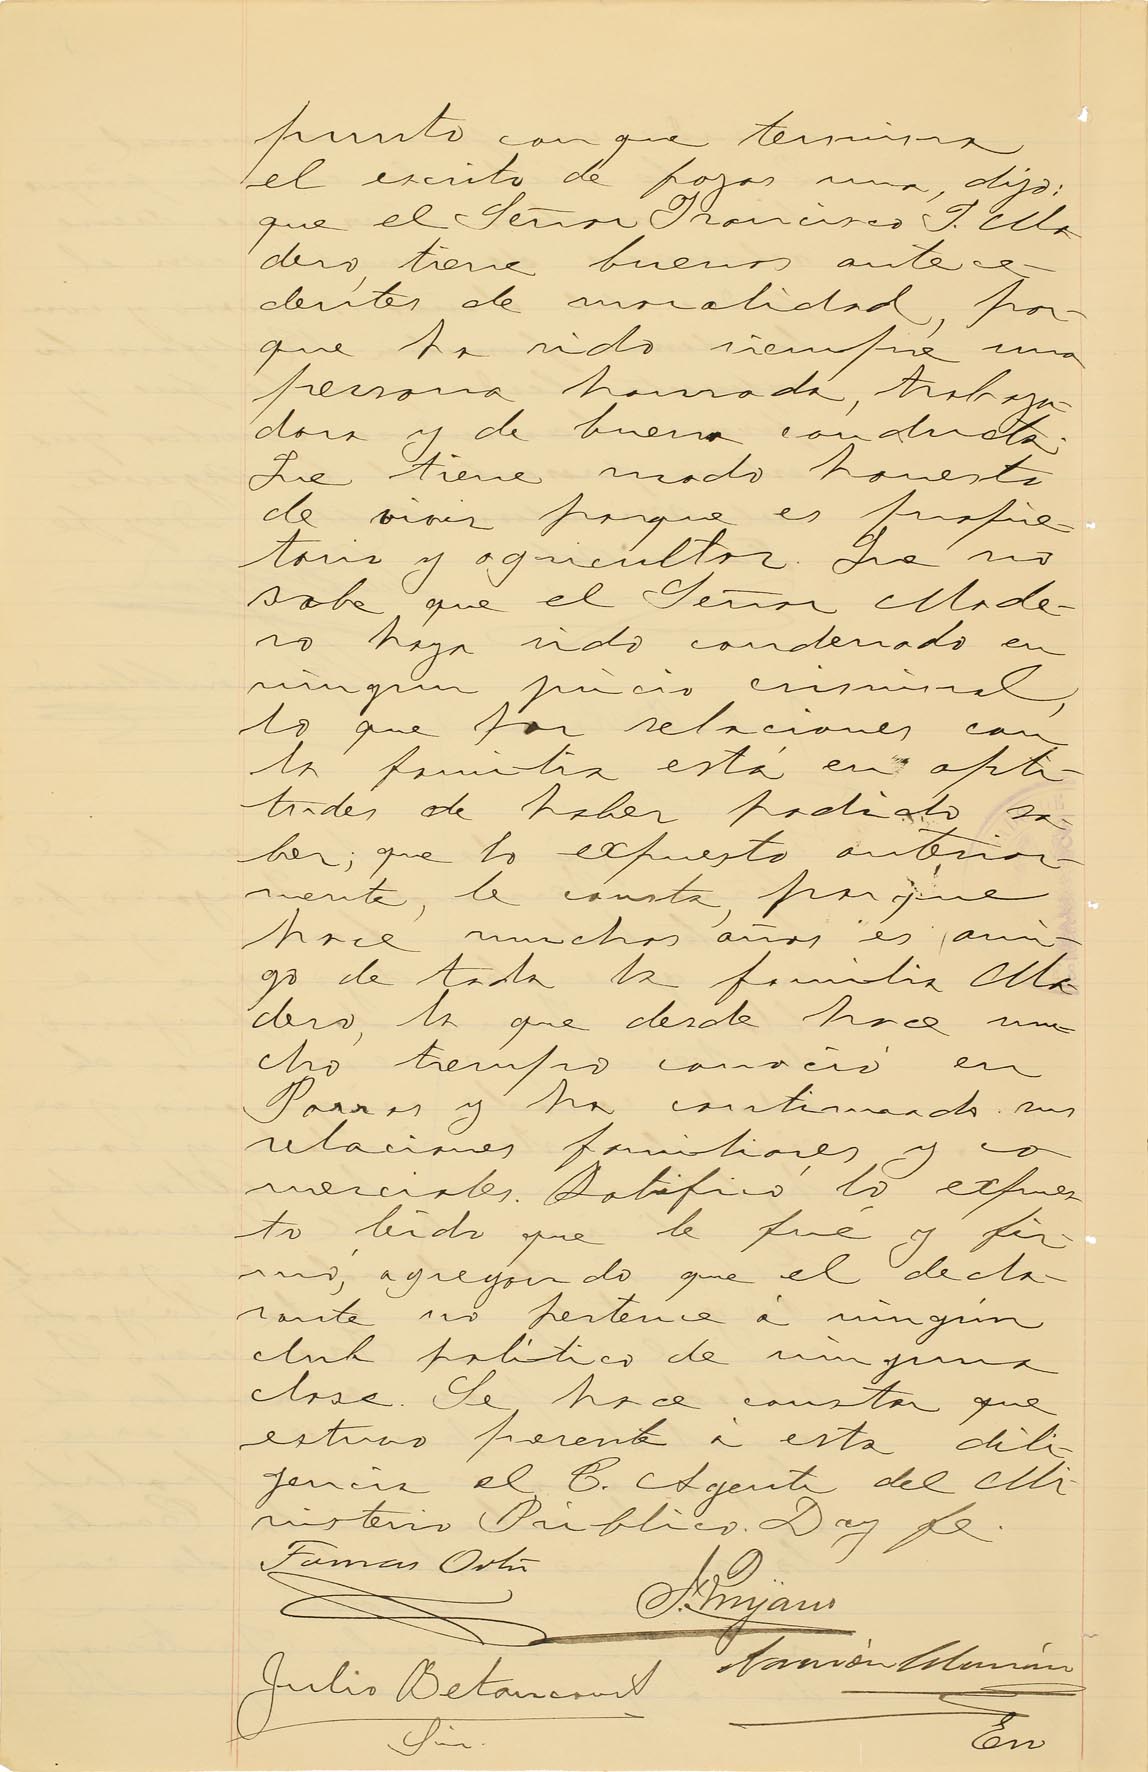 punto con que termina
el escrito de fojas una, dijo:
que el Señor Francisco I. Ma-
dero, tiene buenos antece-
dentes de moralidad, por-
que ha sido siempre una
persona honrada, trabaja-
dora y de buena conducta.
Que tiene modo honesto
de vivir porque es propie-
tario y agricultor. Que no
sabe que el Señor Made-
ro haya sido condenado en
ningun juicio criminal,
lo que por relaciones con
la familia está en apti-
tudes de haber podido sa-
ber; que lo expuesto anterior-
mente, le consta, porque
hace muchos años es ami-
go de toda la familia Ma-
dero, la que desde hace mu-
cho tiempo conoció en
Parras y ha continuado sus
relaciones familiares y co
merciales. Ratificó lo expues
to leido que le fué y fir-
mó, agregando que el decla-
rante no pertence á ningún
club político de ninguna
clase. Se hace constar que
estuvo perente á esta dili-
gencia el C. Agente del Mi-
nisterio Público. Doy fe.
Tomas
Julio Betancourt
Ramón
Srio.
En